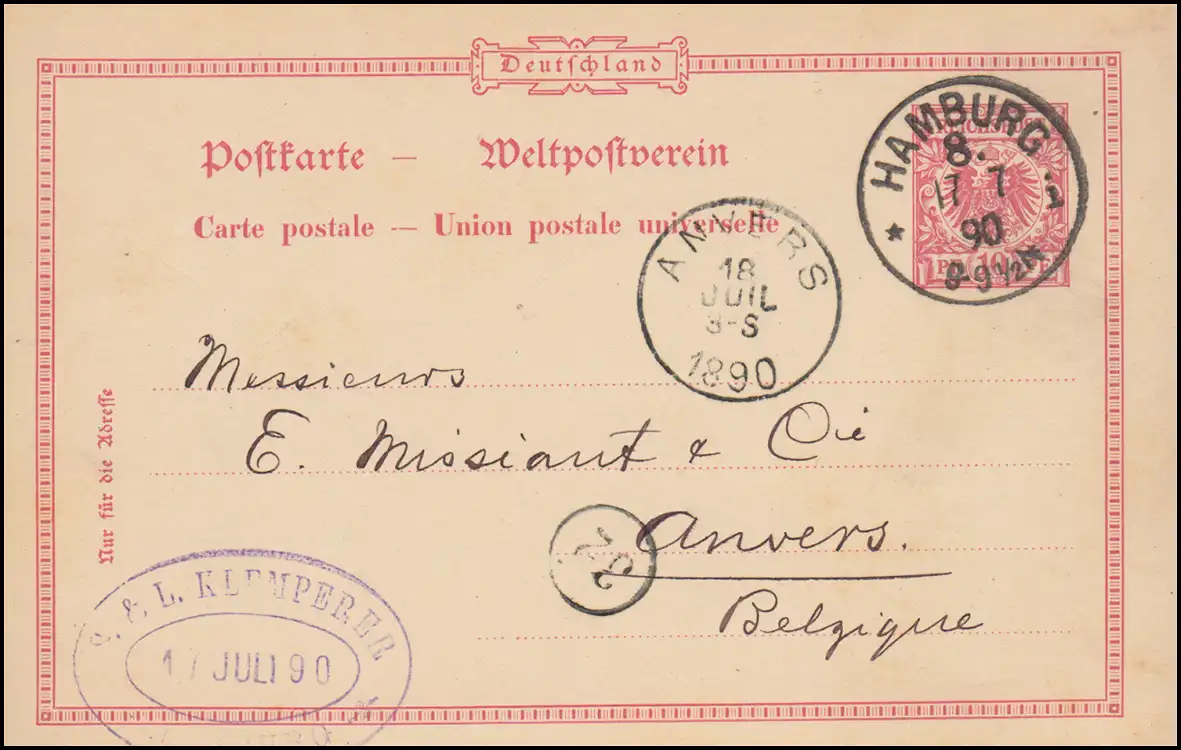 Deutschland
Postkarte – Weltpostverein
Carte postale – Union postale universelle
HAMBURG
8.
17 7
90
8-9 1/2 N
* 1
10
ANVERS
18
JUIL
1890
Messieurs
E. Missiant & Cie
Anvers.
Belgique
Nur für die Adresse
& L. KLEMPERER
17 JULI 90